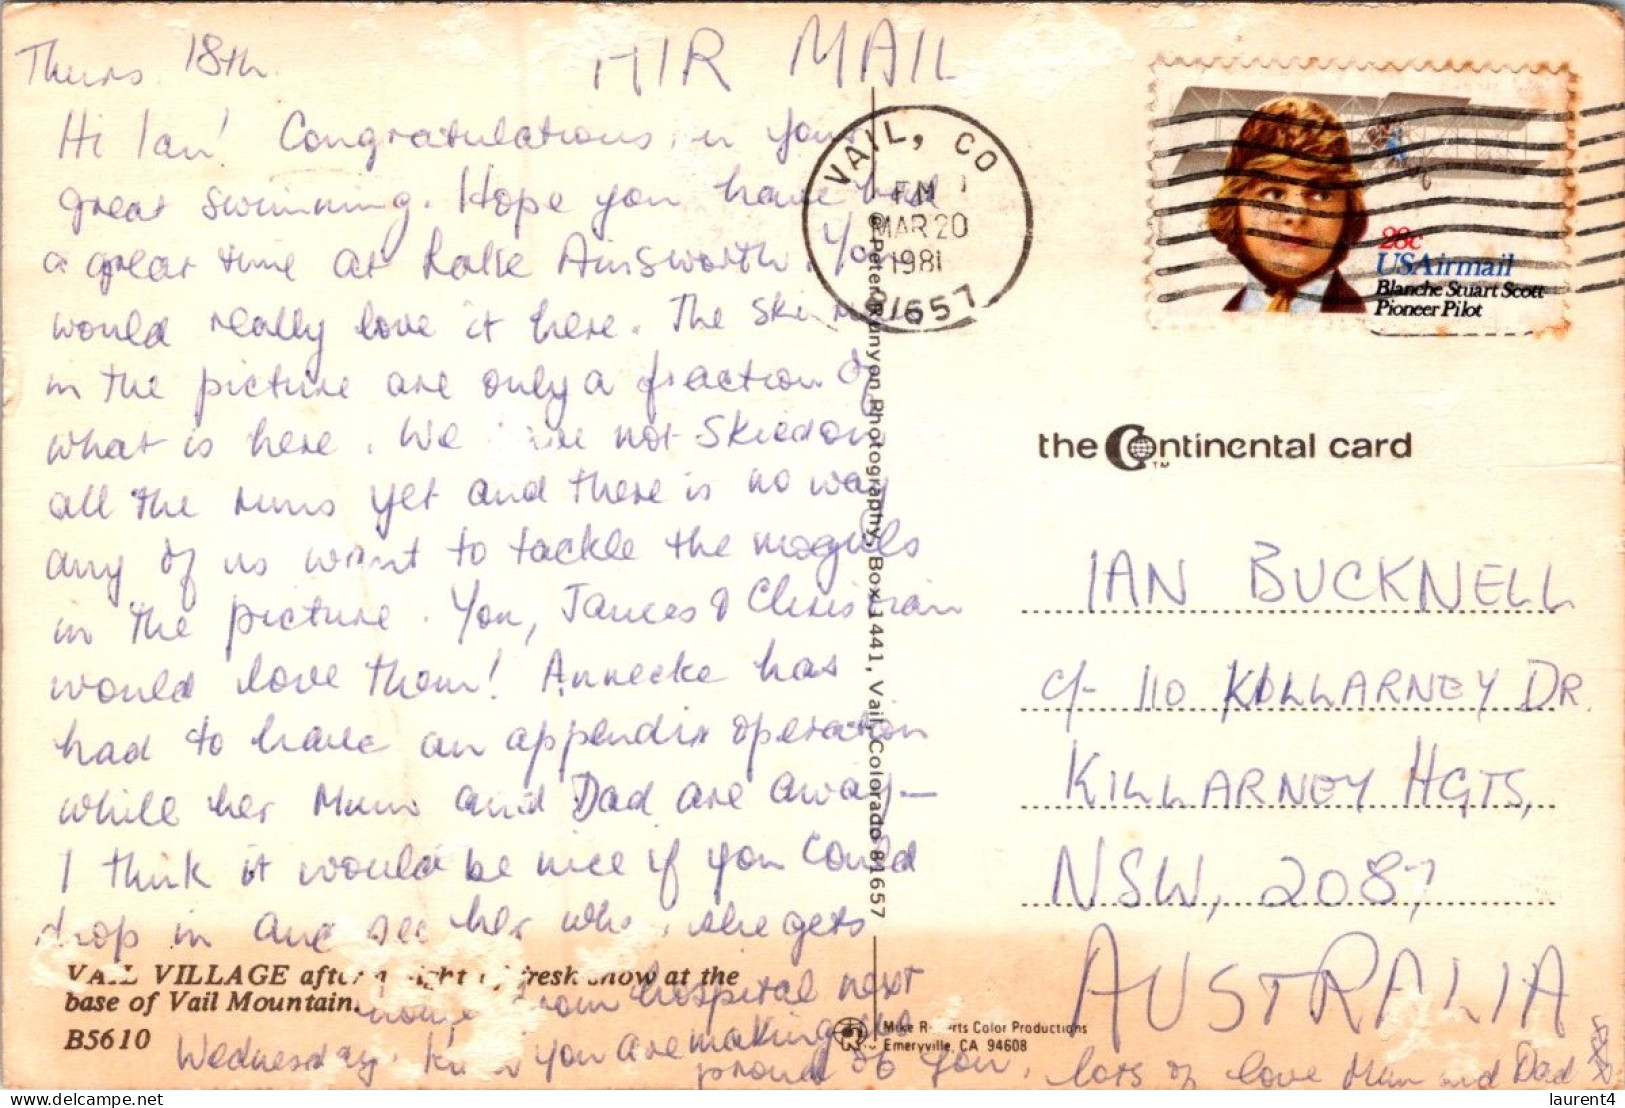 Thurs 18th.
AIR MAIL
Hi Ian! Congratulations, in your
great swimming. Hope you have had
a great time at Lake Ainsworth. You
would really love it here. The ski runs
in the picture are only a fraction of
what is here. We have not skied on
all the runs yet and there is no way
any of us want to tackle the moguls
in the picture. You, James & Christian
would love them! Annecke has
had to have an appendix operation
while her Mum and Dad are away—
I think it would be nice if you could
drop in and see her when she gets
home from hospital next
Wednesday. Know you are making us
proud of you. lots of love Mum and Dad
VAIL VILLAGE after a night of fresh snow at the
base of Vail Mountain.
B5610
© Peter Runyon Photography, Box 1441, Vail, Colorado 81657
VAIL, CO
PM
MAR 20
1981
81657
28c
USAirmail
Blanche Stuart Scott
Pioneer Pilot
the Continental card
TM
IAN BUCKNELL
c/- 110 KILLARNEY DR.
KILLARNEY HGTS,
NSW, 2087
AUSTRALIA
Mike Roberts Color Productions
Emeryville, CA 94608
delcampe.net
laurent4